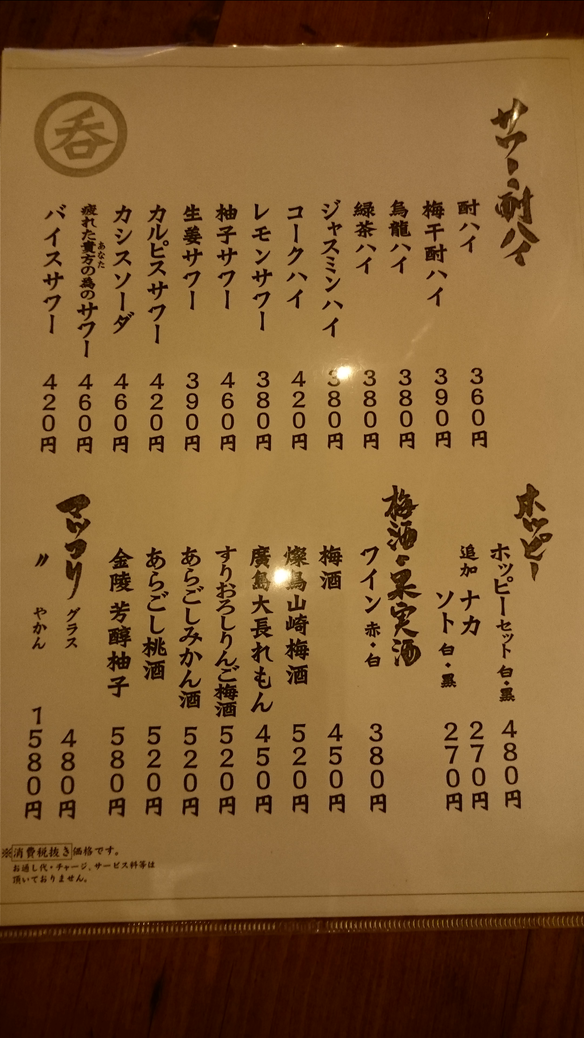 呑
サワー・酎ハイ
酎ハイ 360円
梅干酎ハイ 390円
烏龍ハイ 380円
緑茶ハイ 380円
ジャスミンハイ 380円
コークハイ 420円
レモンサワー 380円
柚子サワー 460円
生姜サワー 390円
カルピスサワー 420円
カシスソーダ 460円
疲れた貴方の為のサワー 460円
あなた
バイスサワー 420円
ホッピー
ホッピーセット 白・黒 480円
追加 ナカ 270円
ソト 白・黒 270円
梅酒・果実酒
ワイン 赤・白 380円
梅酒 450円
燦鳥山崎梅酒 520円
廣島大長れもん 450円
すりおろしりんご梅酒 520円
あらごしみかん酒 520円
あらごし桃酒 520円
金陵 芳醇柚子 580円
マッコリ
グラス 480円
〃 やかん 1580円
※消費税抜き価格です。
お通し代・チャージ、サービス料等は
頂いておりません。